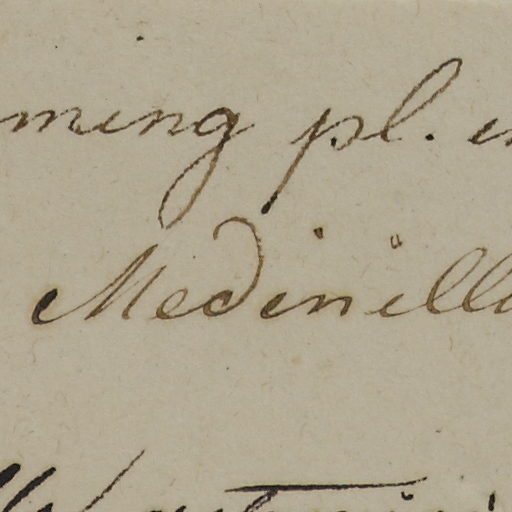 ming pl. in
Medinilla